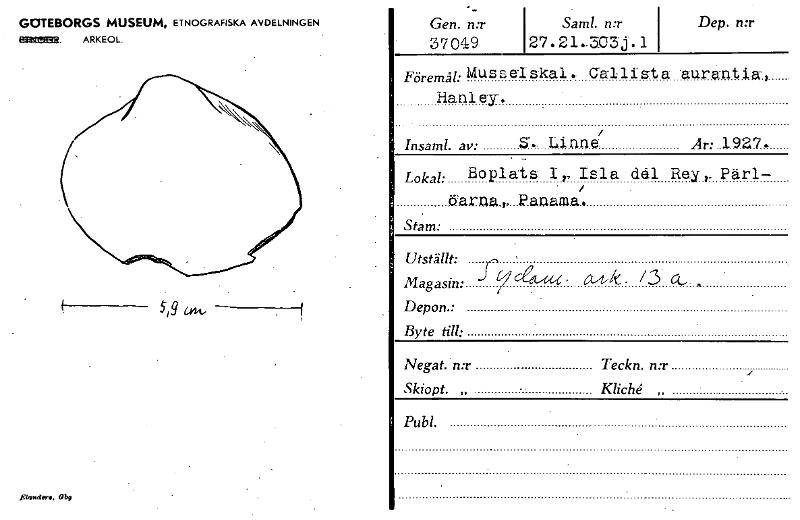 GÖTEBORGS MUSEUM, ETNOGRAFISKA AVDELNINGEN
ARKEOL.
5,9 cm
Elanders, Gbg
Gen. n:r Saml. n:r Dep. n:r
37049 27.21.303j.1
Föremål: Musselskal. Callista aurantia,
Hanley.
Insaml. av: S. Linné År: 1927.
Lokal: Boplats I, Isla del Rey, Pärl-
öarna, Panamá.
Stam:
Utställt:
Magasin: Sydam. ark. 13 a.
Depon.:
Byte till:
Negat. n:r Teckn. n:r
Skiopt. „ Kliché „
Publ.